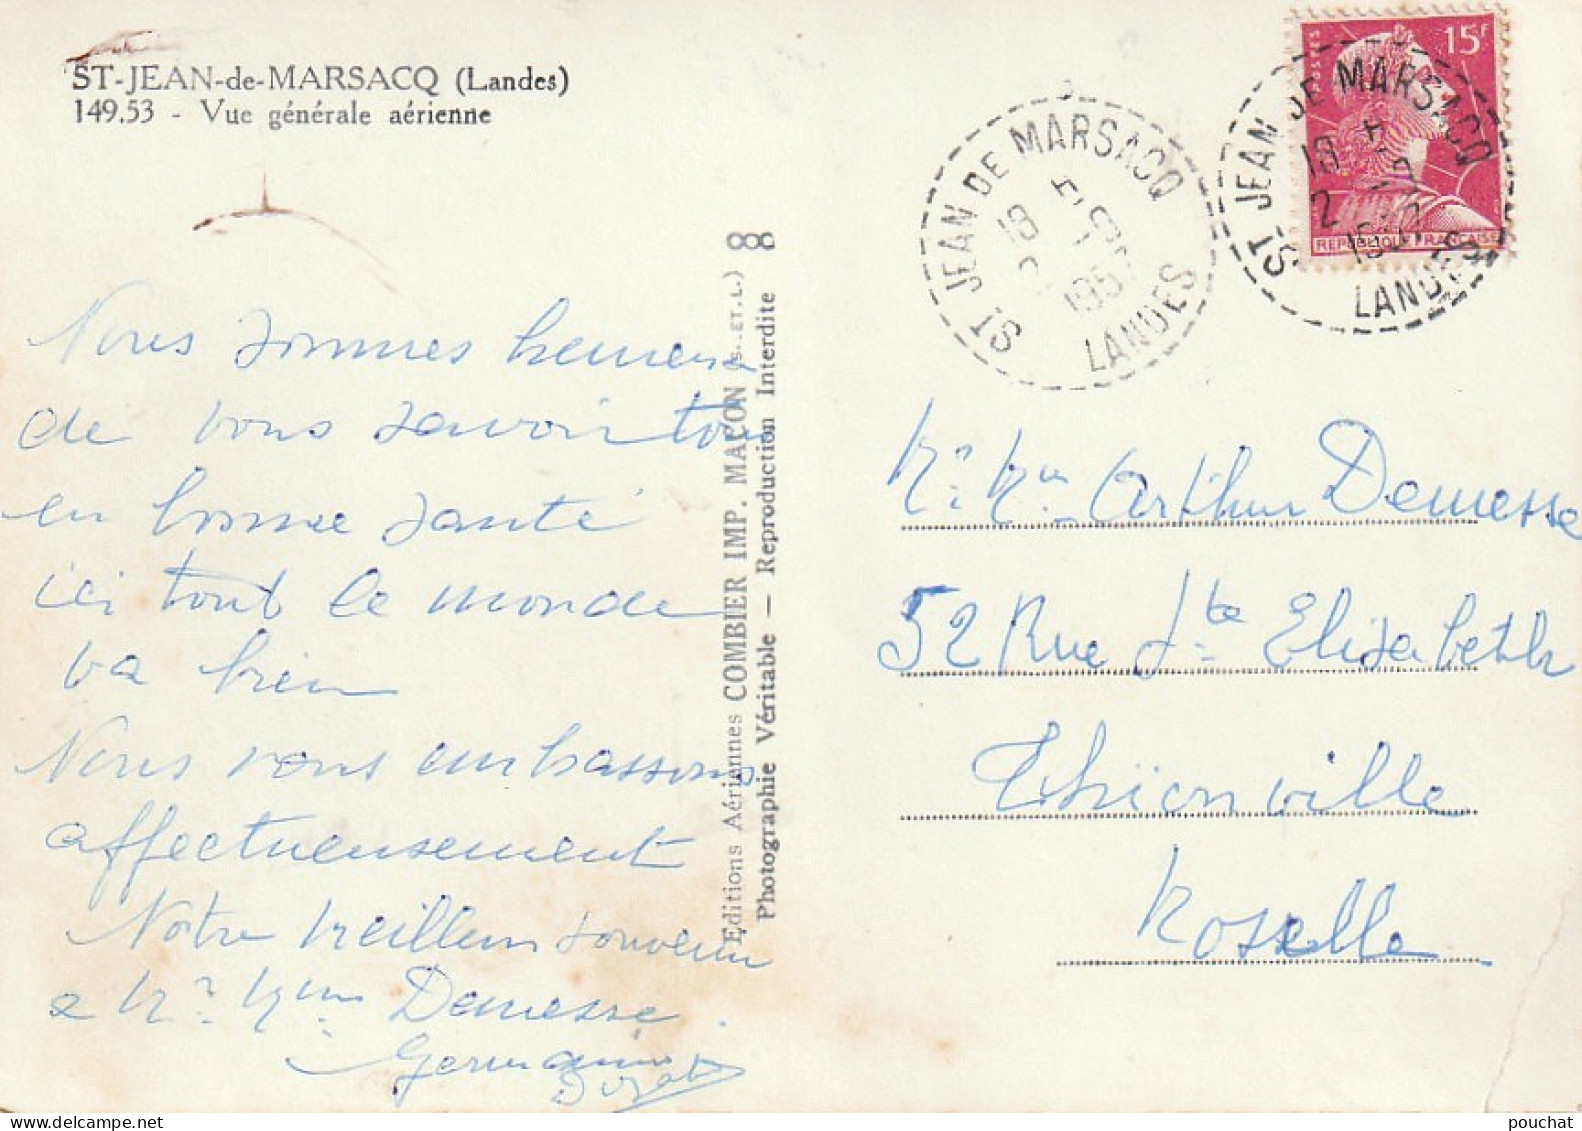 ST-JEAN-de-MARSACQ (Landes)
149.53 - Vue générale aérienne
Nous sommes heureux
de vous savoir tous
en bonne santé
ici tout le monde
va bien
Nous vous embrassons
affectueusement
Notre meilleur souvenir
a Mr Mme Demesse
Germaine
Editions Aériennes COMBIER IMP. MACON (S.-ET.-L.)
Photographie Véritable — Reproduction Interdite
ST JEAN DE MARSACQ
18 H
195
LANDES
15F
POSTES
REPUBLIQUE FRANÇAISE
ST JEAN DE MARSACQ
18 H
2 -7
LANDES
Mr. Mme Arthur Demesse
52 Rue Ste Elisabeth
Thionville
Moselle
pouchat